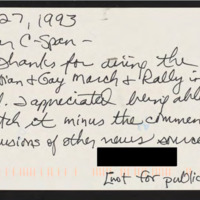 27, 1993
C-Span -
Thanks for airing the
ian & Gay March & Rally in
I appreciated being abl
tch it minus the commen
usions of other news source
[not for public